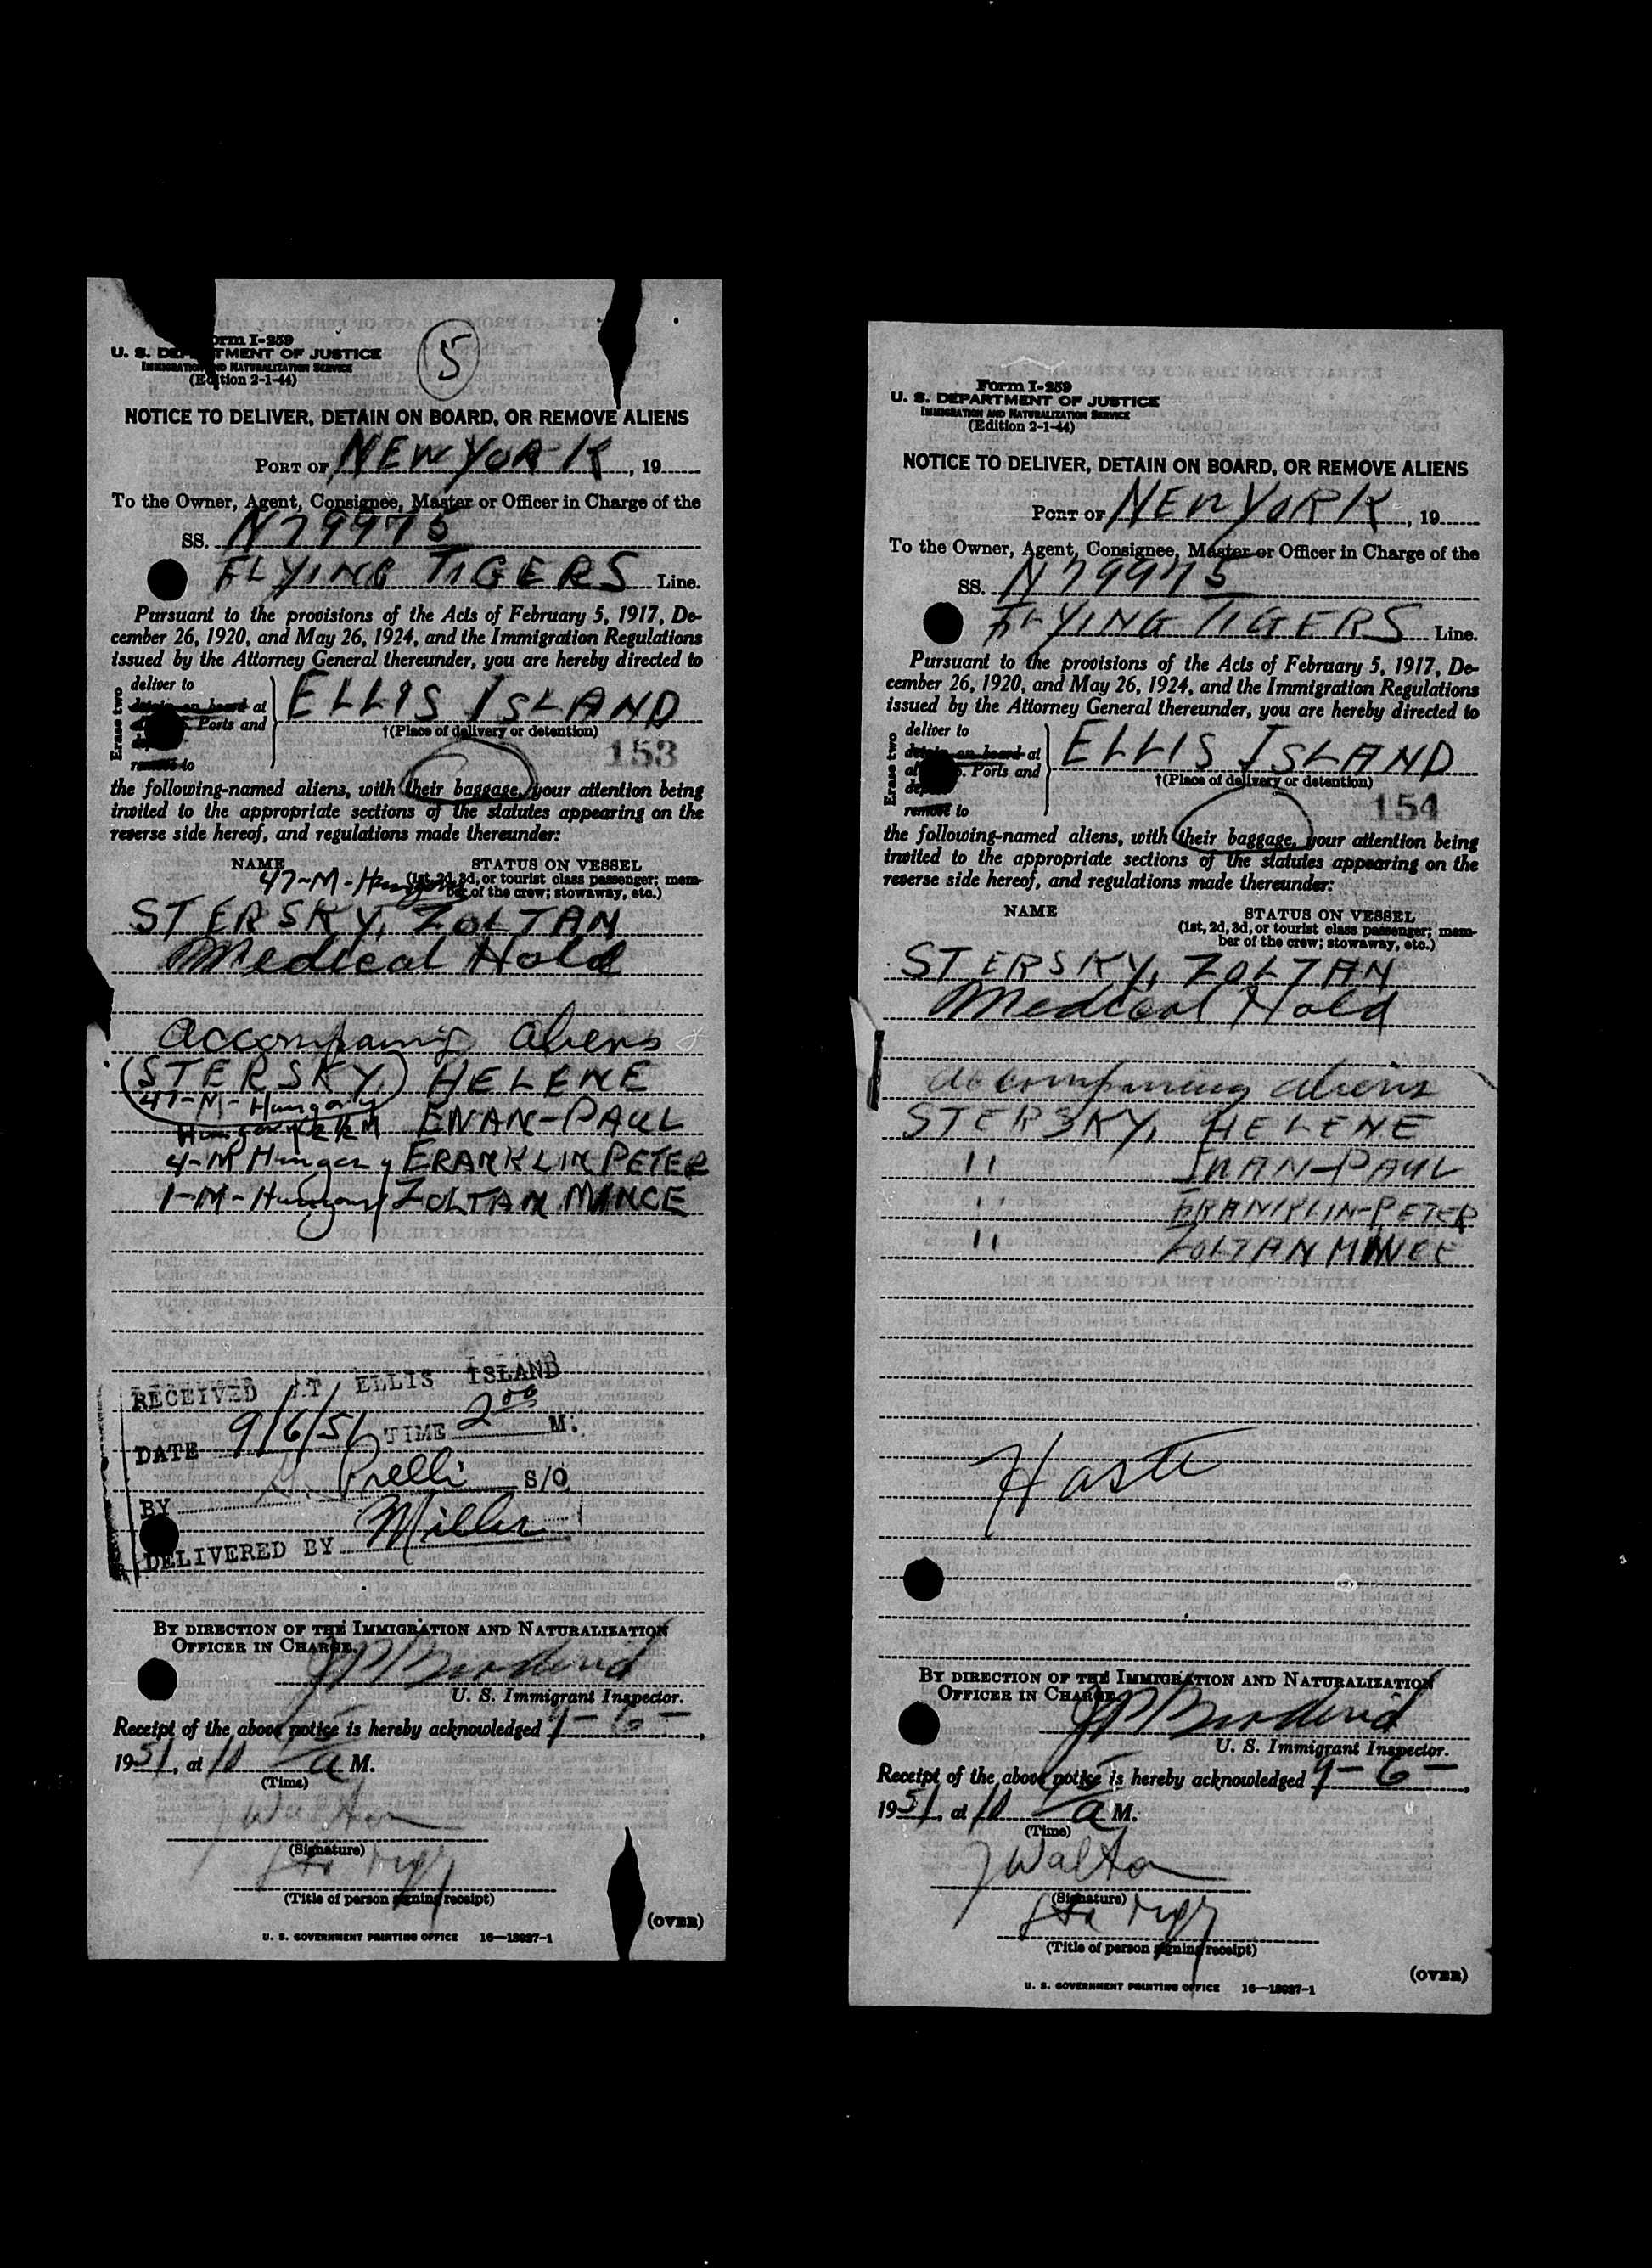 Form I-259
U. S. DEPARTMENT OF JUSTICE
IMMIGRATION AND NATURALIZATION SERVICE
(Edition 2-1-44)
5
NOTICE TO DELIVER, DETAIN ON BOARD, OR REMOVE ALIENS
PORT OF NEW YORK, 19
To the Owner, Agent, Consignee, Master or Officer in Charge of the
SS. N79975
FLYING TIGERS Line.
Pursuant to the provisions of the Acts of February 5, 1917, De-
cember 26, 1920, and May 26, 1924, and the Immigration Regulations
issued by the Attorney General thereunder, you are hereby directed to
Erase two
deliver to
detain on board at
Ports and
remove to
ELLIS ISLAND
†(Place of delivery or detention)
153
the following-named aliens, with their baggage, your attention being
invited to the appropriate sections of the statutes appearing on the
reverse side hereof, and regulations made thereunder:
NAME STATUS ON VESSEL
(1st, 2d, 3d, or tourist class passenger; mem-
ber of the crew; stowaway, etc.)
47-M-Hungary
STERSKY, ZOLTAN
Medical Hold
accompaning aliens
STERSKY, HELENE
47-M-Hungary
Hungary 2½ M ENAN-PAUL
4-M Hungary FRANKLIN PETER
1-M-Hungary ZOLTAN MINCE
RECEIVED AT ELLIS ISLAND
DATE 9/6/51 TIME 2 00 M.
BY Prelli S/O
DELIVERED BY Miller
BY DIRECTION OF THE IMMIGRATION AND NATURALIZATION
OFFICER IN CHARGE.
U. S. Immigrant Inspector.
Receipt of the above notice is hereby acknowledged 9-6-,
1951, at 10 a M.
(Time)
J Walton
(Signature)
Sta Mgr
(Title of person signing receipt)
(OVER)
U. S. GOVERNMENT PRINTING OFFICE 16—18087-1
Form I-259
U. S. DEPARTMENT OF JUSTICE
IMMIGRATION AND NATURALIZATION SERVICE
(Edition 2-1-44)
NOTICE TO DELIVER, DETAIN ON BOARD, OR REMOVE ALIENS
PORT OF NEW YORK, 19
To the Owner, Agent, Consignee, Master or Officer in Charge of the
SS. N79975
FLYING TIGERS Line.
Pursuant to the provisions of the Acts of February 5, 1917, De-
cember 26, 1920, and May 26, 1924, and the Immigration Regulations
issued by the Attorney General thereunder, you are hereby directed to
Erase two
deliver to
detain on board at
Ports and
remove to
ELLIS ISLAND
†(Place of delivery or detention)
154
the following-named aliens, with their baggage, your attention being
invited to the appropriate sections of the statutes appearing on the
reverse side hereof, and regulations made thereunder:
NAME STATUS ON VESSEL
(1st, 2d, 3d, or tourist class passenger; mem-
ber of the crew; stowaway, etc.)
STERSKY, ZOLTAN
Medical Hold
accompaning aliens
STERSKY, HELENE
" IWAN-PAUL
" FRANKLIN-PETER
" ZOLTAN MINCE
BY DIRECTION OF THE IMMIGRATION AND NATURALIZATION
OFFICER IN CHARGE.
U. S. Immigrant Inspector.
Receipt of the above notice is hereby acknowledged 9-6-,
1951, at 10 a M.
(Time)
J Walton
(Signature)
Sta Mgr
(Title of person signing receipt)
(OVER)
U. S. GOVERNMENT PRINTING OFFICE 16—18087-1